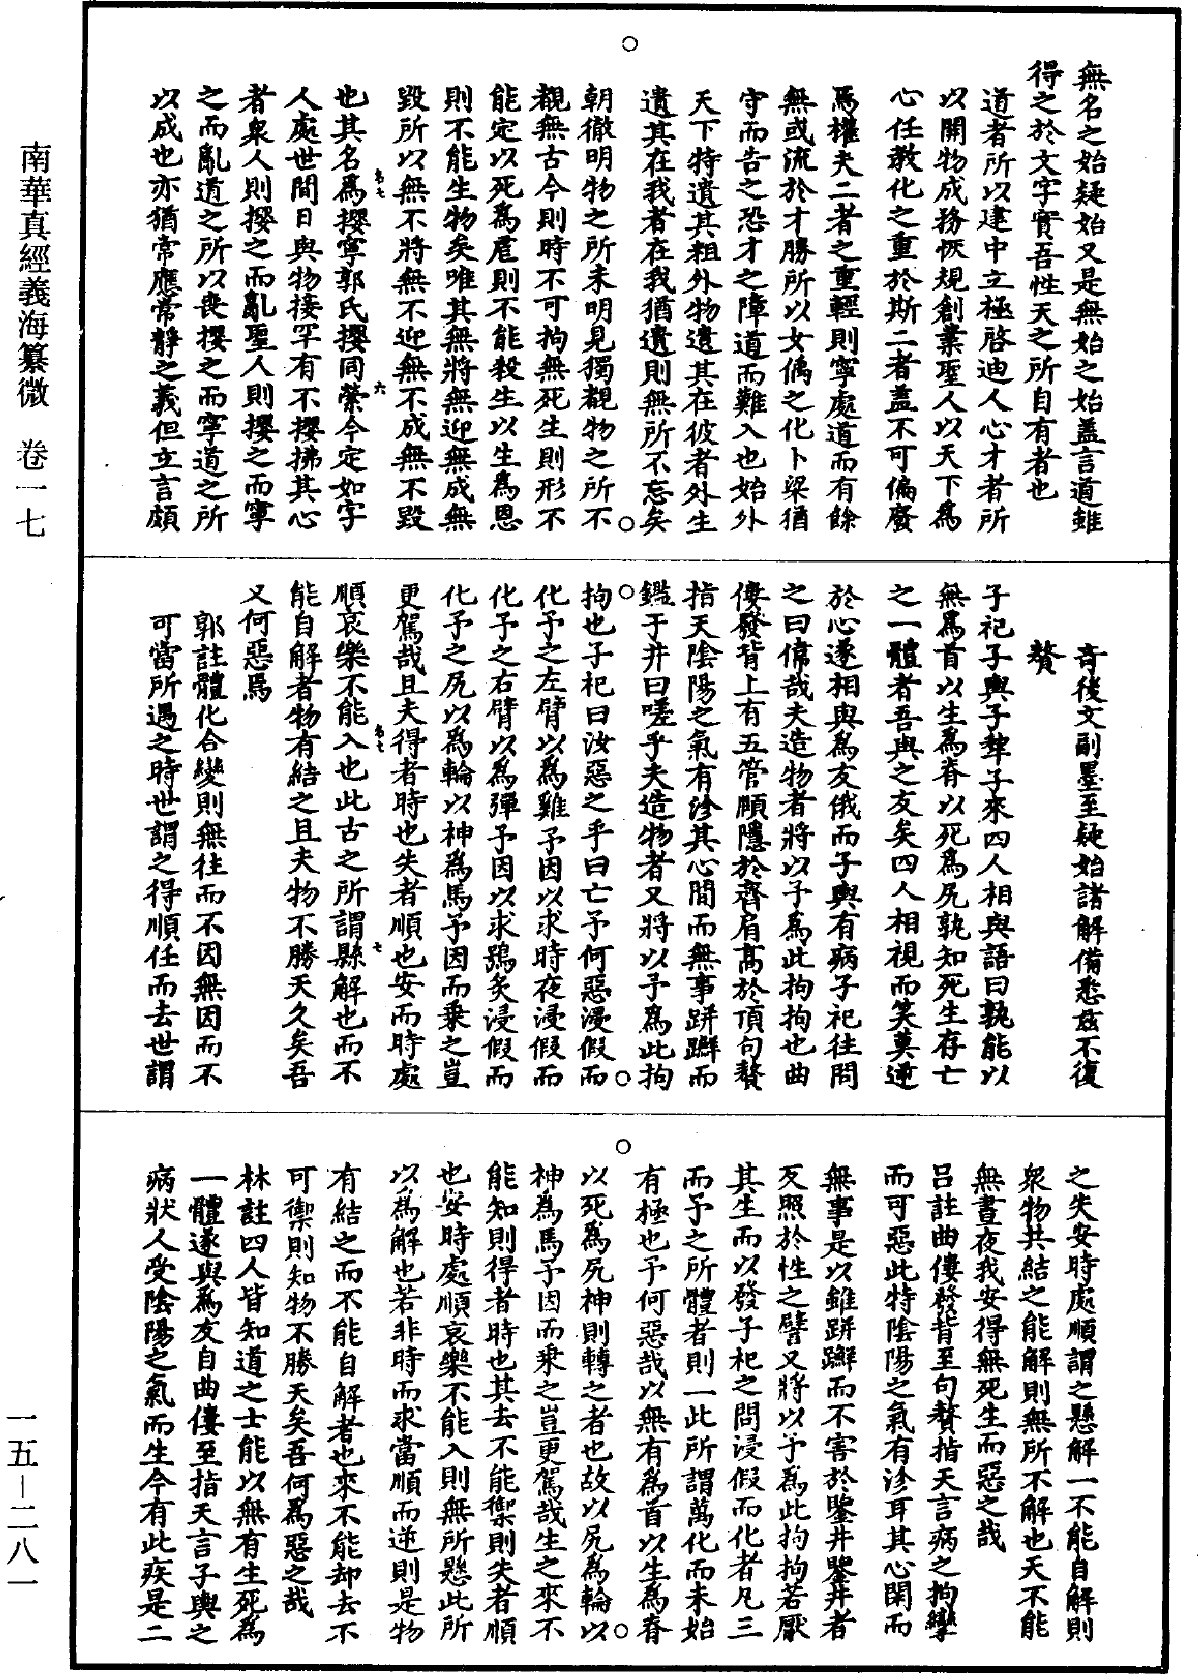 無名之始疑始又是無始之始蓋言道雖
得之於文字實吾性天之所自有者也
道者所以建中立極啓迪人心才者所
以開物成務恢規創業聖人以天下為
心任教化之重於斯二者蓋不可偏廢
焉權夫二者之重輕則寧處道而有餘
無或流於才勝所以女偊之化卜梁猶
守而告之恐才之障道而難入也始外
天下特遺其粗外物遺其在彼者外生
遺其在我者在我猶遺則無所不忘矣
朝徹明物之所未明見獨覩物之所不
覩無古今則時不可拘無死生則形不
能定以死為虐則不能殺生以生為恩
則不能生物矣唯其無將無迎無成無
毀所以無不將無不迎無不成無不毀
也其名為攖寧郭氏攖同縈今定如字
人處世間日與物接罕有不攖拂其心
者衆人則攖之而亂聖人則攖之而寧
之而亂道之所以喪攖之而寧道之所
以成也亦猶常應常靜之義但立言頗
奇後文副墨至疑始諸解備悉茲不復
贅
子祀子輿子犂子來四人相與語曰孰能以
無為首以生為脊以死為尻孰知死生存亡
之一體者吾與之友矣四人相視而笑莫逆
於心遂相與為友俄而子輿有病子祀往問
之曰偉哉夫造物者將以予為此拘拘也曲
僂發背上有五管頤隱於齊肩高於頂句贅
指天陰陽之氣有沴其心閒而無事跰𨇤而
鑑于井曰嗟乎夫造物者又將以予為此拘
拘也子祀曰汝惡之乎曰亡予何惡浸假而
化予之左臂以為雞予因以求時夜浸假而
化予之右臂以為彈予因以求鴞炙浸假而
化予之尻以為輪以神為馬予因而乗之豈
更駕哉且夫得者時也失者順也安而時處
順哀樂不能入也此古之所謂縣解也而不
能自解者物有結之且夫物不勝天久矣吾
又何惡焉
郭註體化合變則無往而不因無因而不
可當所遇之時世謂之得順任而去世謂
之失安時處順謂之懸解一不能自解則
衆物共結之能解則無所不解也天不能
無晝夜我安得無死生而惡之哉
呂註曲僂發背至句贅指天言病之拘攣
而可惡此特陰陽之氣有沴耳其心閑而
無事是以雖跰𨇤而不害於鑒井鑒井者
反照於性之譬又將以予為此拘拘若厭
其生而以發子祀之問浸假而化者凡三
而予之所體者則一此所謂萬化而未始
有極也予何惡哉以無有為首以生為脊
以死為尻神則轉之者也故以尻為輪以
神為馬予因而乗之豈更駕哉生之來不
能知則得者時也其去不能禦則失者順
也安時處順哀樂不能入則無所懸此所
以為解也若非時而求當順而逆則是物
有結之而不能自解者也來不能却去不
可禦則知物不勝天矣吾何為惡之哉
林註四人皆知道之士能以無有生死為
一體遂與為友自曲僂至指天言子輿之
病狀人受陰陽之氣而生今有此疾是二
南華真經義海纂微　卷一七
一五—二八一